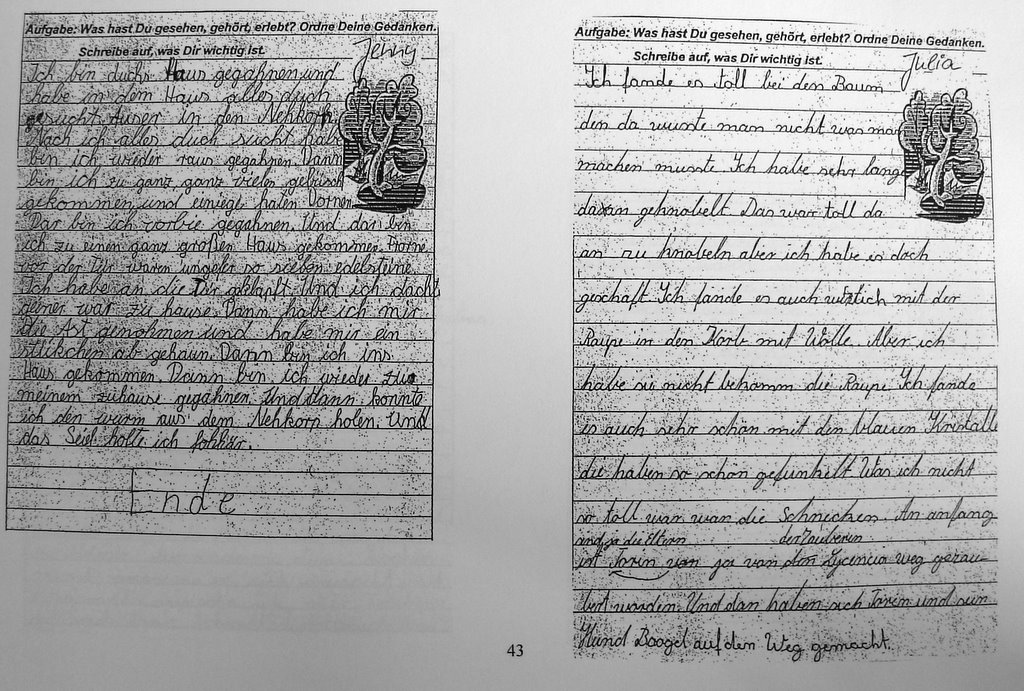 Aufgabe: Was hast Du gesehen, gehört, erlebt? Ordne Deine Gedanken.
Schreibe auf, was Dir wichtig ist.
Jenny
Ich bin duchs Haus gegahnen und
habe in dem Haus alles duch
gesucht. Auser in den Nehkorp.
Nach ich alles duch sucht habe
bin ich wieder raus gegahnen. Dann
bin ich zu ganz ganz vielen gebüsch
gekommen und einiege haten Dornen
Dar bin ich vorbie gegahnen. Und dar bin
ich zu einen ganz großen Haus gekommen.
vor der Tür waren ungefer so sieben edelsteine
Ich habe an die Tür geklopft Und ich dacht
keiner war zu hause. Dann habe ich mir
die Axt genohmen und habe mir ein
stückchen ab gehaun. Dann bin ich ins
Haus gekommen. Dann bin ich wieder zu
meinem zuhause gegahnen. Und dann konnte
ich den wurm aus dem Nehkorp holen. Und
das Seiel holte ich
Ende
Aufgabe: Was hast Du gesehen, gehört, erlebt? Ordne Deine Gedanken.
Schreibe auf, was Dir wichtig ist.
Julia
Ich fande es toll bei den Baum
den da wuste man nicht was man
machen musste. Ich habe sehr lange
daran geknobelt. Das war toll da
an zu knobeln aber ich habe es doch
geschaft. Ich fande es auch witzich mit der
Raupe in den Korb mit Wolle. Aber ich
habe sie nicht bekomm die Raupe. Ich fande
es auch sehr schön mit den blauen Kristalle
die haben so schön gefunkelt. Was ich nicht
so toll war wan die Schnecken. An anfang
sind ja die Eltern der Zauberin
ist Torin von ja von den Lycencia weg gezau-
bert worden. Und dan haben sich Torin und sein
Hund Boogel auf den Weg gemacht.
43